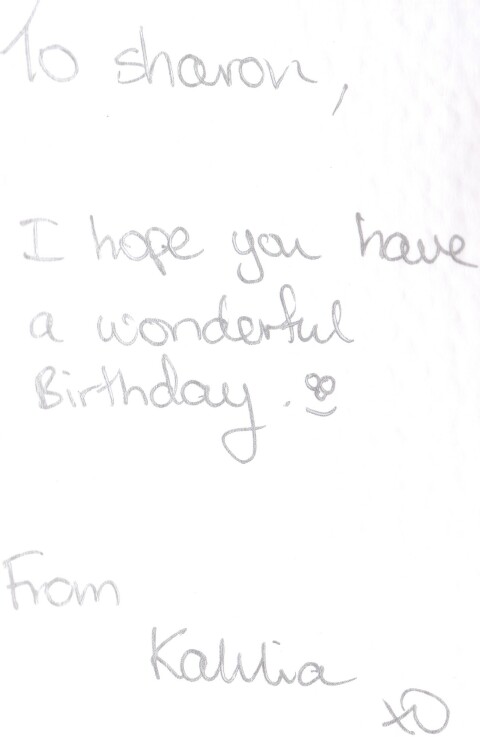 To sharon,
I hope you have
a wonderful
Birthday.
From
xo